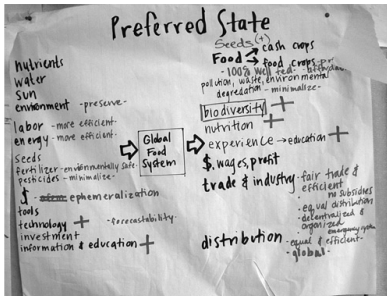 Preferred State
nutrients
water
sun
environment -preserve-
labor - more efficient-
energy - more efficient.
seeds
fertilizer - environmentally safe-
pesticides - minimalize-
$ - ephemeralization
tools
technology + -forecastability-
investment
information & education +
Global
Food
System
Seeds (+)
Food → cash crops
→ food crops
-100% well fed-
pollution, waste, environmental
degredation - minimalize-
biodiversity +
nutrition +
experience → education +
$. wages, profit
trade & industry - fair trade &
efficient
no subsidies
- equal distribution
- decentralized &
organized
emergency system
distribution - equal & efficient-
-global-